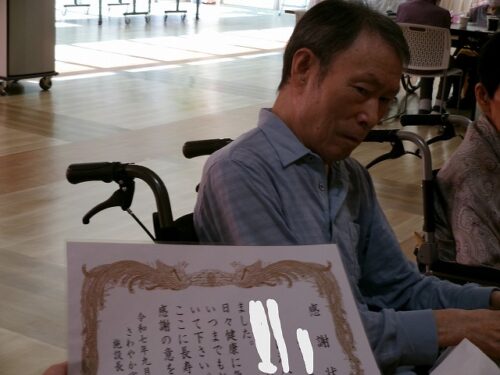 感謝状
ました
日々健康に
いつまでも
いて下さい
ここに長寿
感謝の意を
令和七年九月
さわやか
施設長